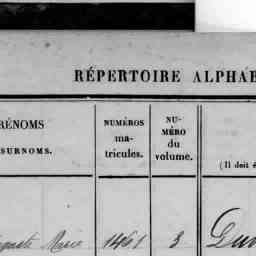 RÉPERTOIRE ALPHAB
RÉNOMS
SURNOMS.
NUMÉROS
ma-
tricules.
NU-
MÉRO
du
volume.
(Il doit é
1461 3